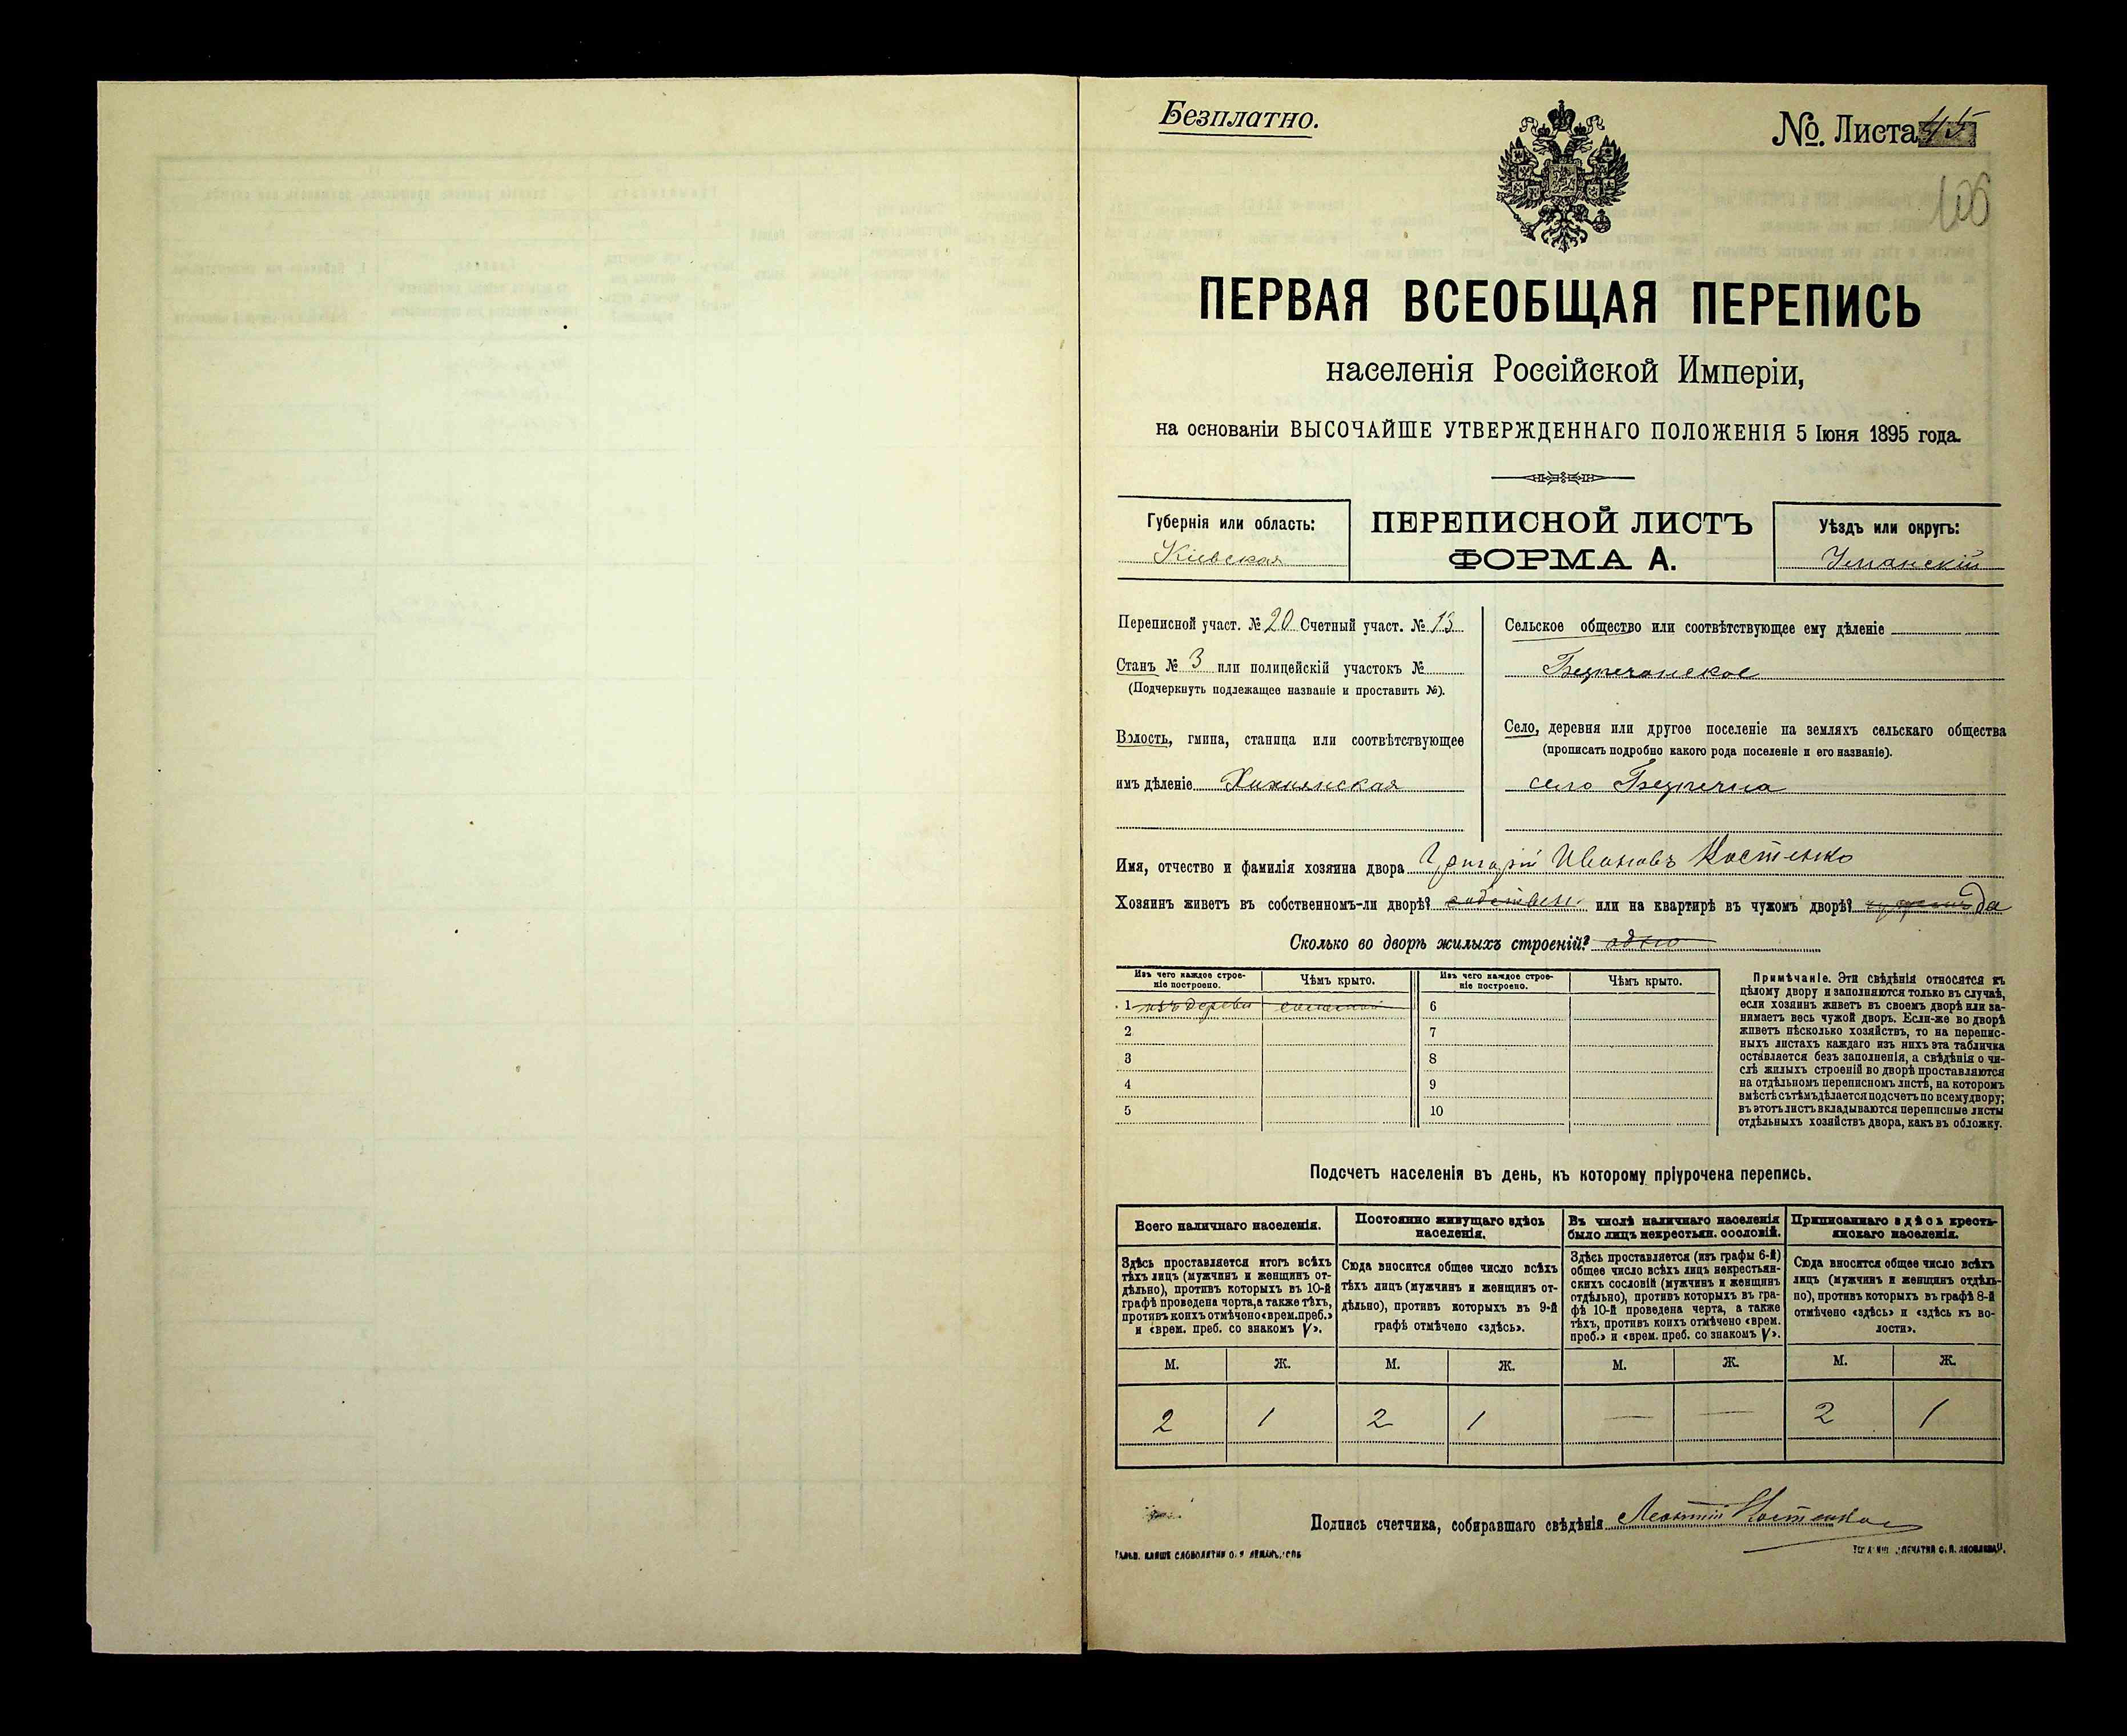 Безплатно.
№. Листа 45
106
ПЕРВАЯ ВСЕОБЩАЯ ПЕРЕПИСЬ
населенія Россійской Имперіи,
на основаніи ВЫСОЧАЙШЕ УТВЕРЖДЕННАГО ПОЛОЖЕНІЯ 5 Іюня 1895 года.
Губернія или область:
Кіевская
ПЕРЕПИСНОЙ ЛИСТЪ
ФОРМА А.
Уѣздъ или округъ:
Уманскій
Переписной участ. № 20 Счетный участ. № 13
Станъ № 3 или полицейскій участокъ №
(Подчеркнуть подлежащее названіе и проставить №).
Волость, гмина, станица или соотвѣтствующее
имъ дѣленіе Хижинская
Сельское общество или соотвѣтствующее ему дѣленіе
Безпечанское
Село, деревня или другое поселеніе на земляхъ сельскаго общества
(прописать подробно какого рода поселеніе и его названіе).
село Безпечна
Имя, отчество и фамилія хозяина двора Григорій Ивановъ Костенко
Хозяинъ живетъ въ собственномъ-ли дворѣ? собствен. или на квартирѣ въ чужомъ дворѣ? да
Сколько во дворѣ жилыхъ строеній? одно
Изъ чего каждое строе-
ніе построено.
Чѣмъ крыто.
Изъ чего каждое строе-
ніе построено.
Чѣмъ крыто.
1 изъ дерева соломой 6
2 7
3 8
4 9
5 10
Примѣчаніе. Эти свѣдѣнія относятся къ
цѣлому двору и заполняются только въ случаѣ,
если хозяинъ живетъ въ своемъ дворѣ или за-
нимаетъ весь чужой дворъ. Если-же во дворѣ
живетъ нѣсколько хозяйствъ, то на перепис-
ныхъ листахъ каждаго изъ нихъ эта табличка
оставляется безъ заполненія, а свѣдѣнія о чи-
слѣ жилыхъ строеній во дворѣ проставляются
на отдѣльномъ переписномъ листѣ, на которомъ
вмѣстѣ съ тѣмъ дѣлается подсчетъ по всему двору;
въ этотъ листъ вкладываются переписные листы
отдѣльныхъ хозяйствъ двора, какъ въ обложку.
Подсчетъ населенія въ день, къ которому пріурочена перепись.
Всего наличнаго населенія.
Здѣсь проставляется итогъ всѣхъ
тѣхъ лицъ (мужчинъ и женщинъ от-
дѣльно), противъ которыхъ въ 10-й
графѣ проведена черта, а также тѣхъ,
противъ коихъ отмѣчено «врем. преб.»
и «врем. преб. со знакомъ V».
Постоянно живущаго здѣсь
населенія.
Сюда вносится общее число всѣхъ
тѣхъ лицъ (мужчинъ и женщинъ от-
дѣльно), противъ которыхъ въ 9-й
графѣ отмѣчено «здѣсь».
Въ числѣ наличнаго населенія
было лицъ некрестьян. сословій.
Здѣсь проставляется (изъ графы 6-й)
общее число всѣхъ лицъ некрестьян-
скихъ сословій (мужчинъ и женщинъ
отдѣльно), противъ которыхъ въ гра-
фѣ 10-й проведена черта, а также
тѣхъ, противъ коихъ отмѣчено «врем.
преб.» и «врем. преб. со знакомъ V».
Приписаннаго здѣсь кресть-
янскаго населенія.
Сюда вносится общее число всѣхъ
лицъ (мужчинъ и женщинъ отдѣль-
но), противъ которыхъ въ графѣ 8-й
отмѣчено «здѣсь» и «здѣсь къ во-
лости».
М. Ж. М. Ж. М. Ж. М. Ж.
2 1 2 1 — — 2 1
Подпись счетчика, собиравшаго свѣдѣнія Леонтій Костенко